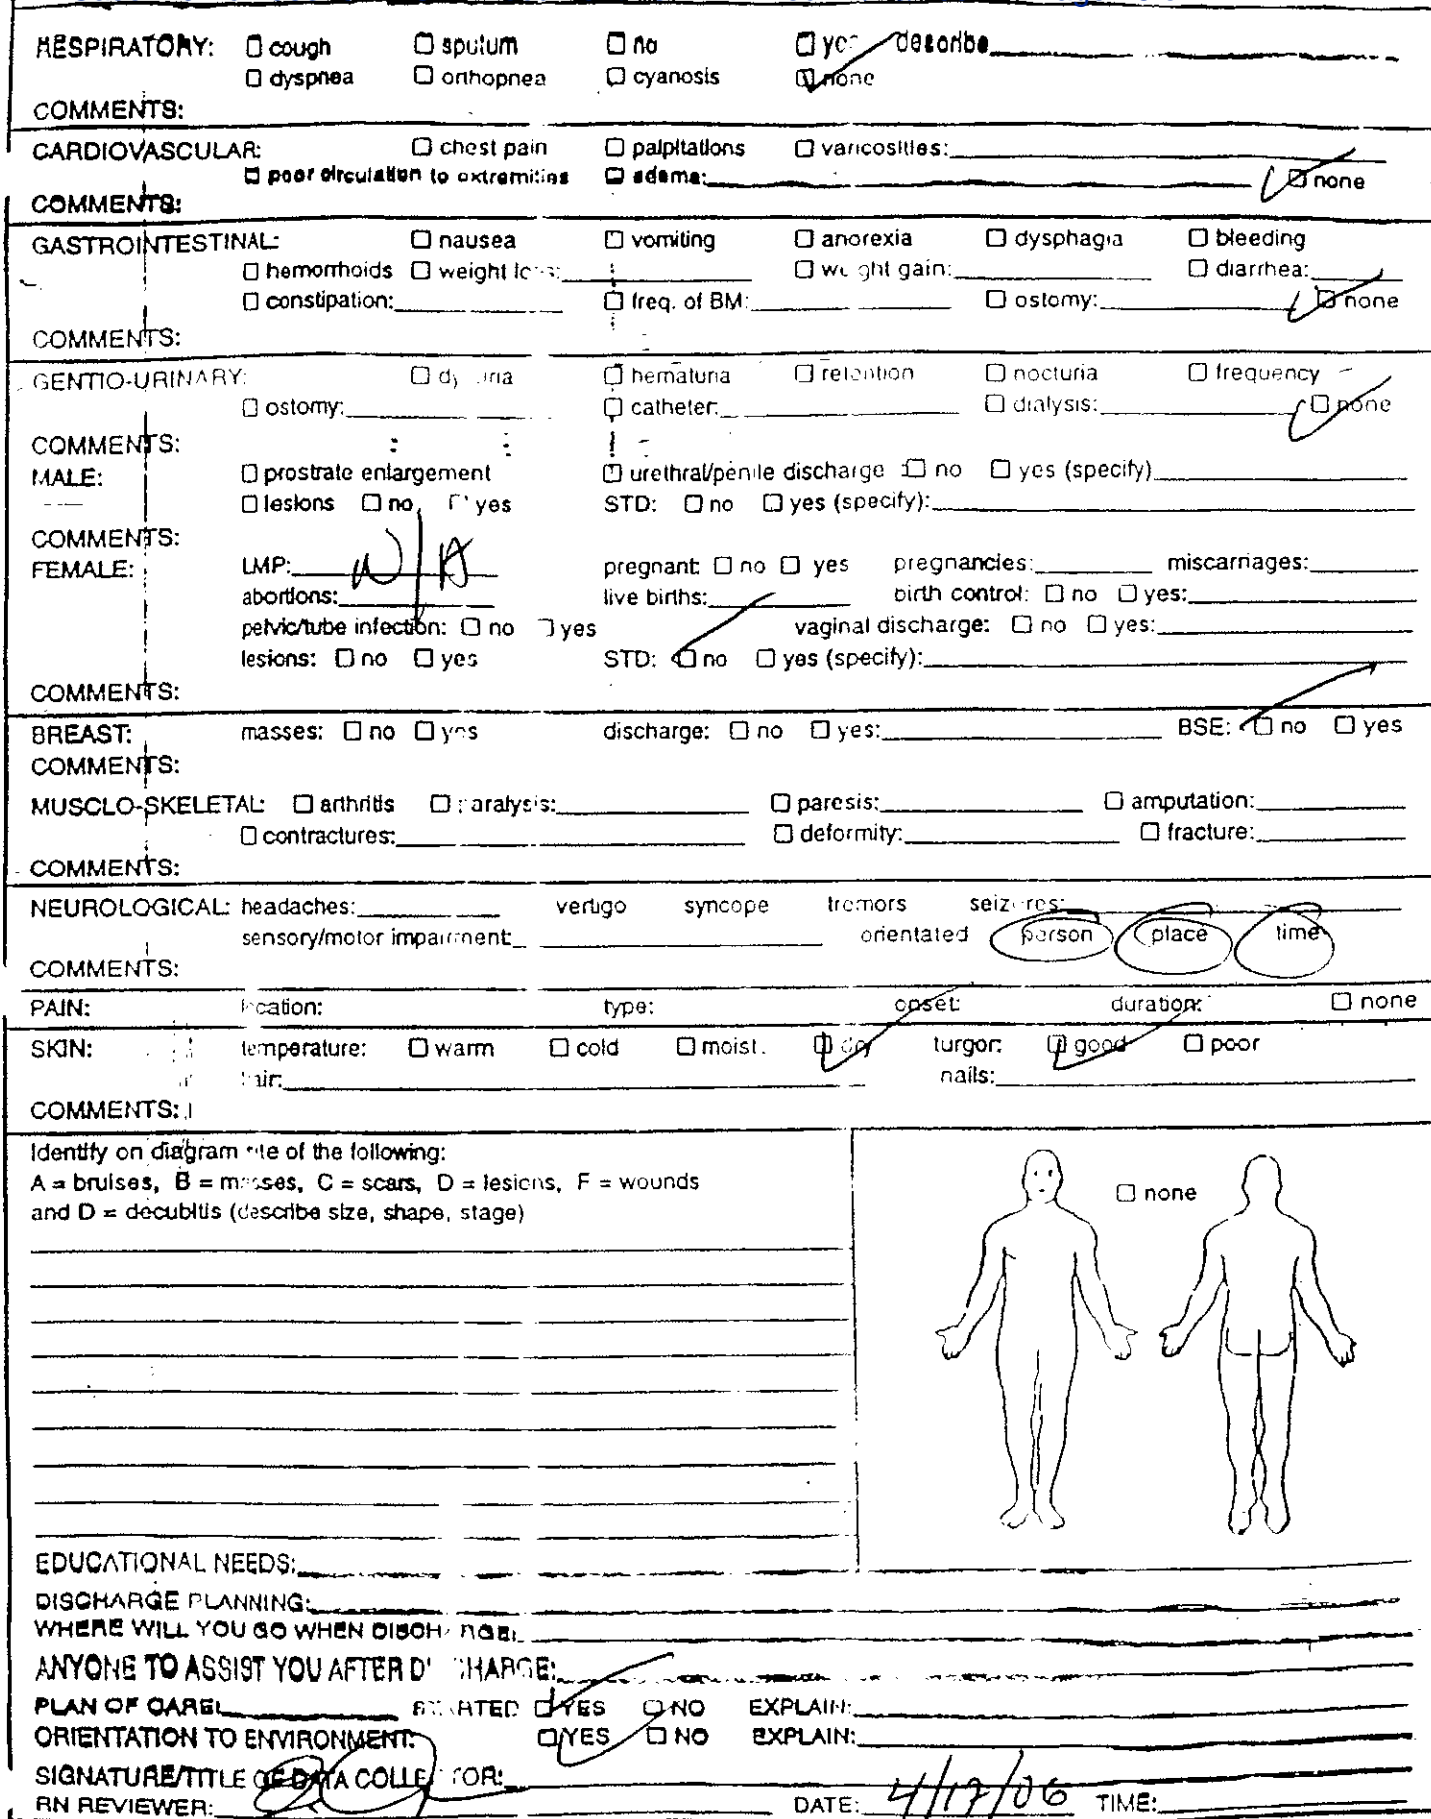 RESPIRATORY: ☐ cough ☐ sputum ☐ no ☐ describe
☐ dyspnea ☐ orthopnea ☐ cyanosis ☑ none
COMMENTS:
CARDIOVASCULAR: ☐ chest pain ☐ palpitations ☐ varicosities:
☐ poor circulation to extremities ☐ edema: ☑ none
COMMENTS:
GASTROINTESTINAL: ☐ nausea ☐ vomiting ☐ anorexia ☐ dysphagia ☐ bleeding
☐ hemorrhoids ☐ weight loss: ☐ weight gain: ☐ diarrhea:
☐ constipation: ☐ freq. of BM: ☐ ostomy: ☑ none
COMMENTS:
GENTIO-URINARY: ☐ ☐ hematuria ☐ retention ☐ nocturia ☐ frequency
☐ ostomy: ☐ catheter: ☐ dialysis: ☑ none
COMMENTS:
MALE: ☐ prostrate enlargement ☐ urethral/penile discharge ☐ no ☐ yes (specify)
☐ lesions ☐ no ☐ yes STD: ☐ no ☐ yes (specify):
COMMENTS:
FEMALE: LMP: N/A pregnant: ☐ no ☐ yes pregnancies: miscarriages:
abortions: live births: birth control: ☐ no ☐ yes:
pelvic/tube infection: ☐ no ☐ yes vaginal discharge: ☐ no ☐ yes:
lesions: ☐ no ☐ yes STD: ☑ no ☐ yes (specify):
COMMENTS:
BREAST: masses: ☐ no ☐ yes discharge: ☐ no ☐ yes: BSE: ☑ no ☐ yes
COMMENTS:
MUSCLO-SKELETAL: ☐ arthritis ☐ paralysis: ☐ paresis: ☐ amputation:
☐ contractures: ☐ deformity: ☐ fracture:
COMMENTS:
NEUROLOGICAL: headaches: vertigo syncope tremors seizures:
sensory/motor impairment: orientated person place time
COMMENTS:
PAIN: location: type: onset: duration: ☐ none
SKIN: temperature: ☐ warm ☐ cold ☐ moist ☑ dry turgor: ☑ good ☐ poor
hair: nails:
COMMENTS:
Identify on diagram site of the following:
A = bruises, B = masses, C = scars, D = lesions, F = wounds
and D = decubitis (describe size, shape, stage)
☐ none
EDUCATIONAL NEEDS:
DISCHARGE PLANNING:
WHERE WILL YOU GO WHEN
ANYONE TO ASSIST YOU AFTER DISCHARGE:
PLAN OF CARE: ☑ YES ☐ NO EXPLAIN:
ORIENTATION TO ENVIRONMENT: ☑ YES ☐ NO EXPLAIN:
SIGNATURE/TITLE OF DATA COLLECTOR:
RN REVIEWER: DATE: 4/17/06 TIME: